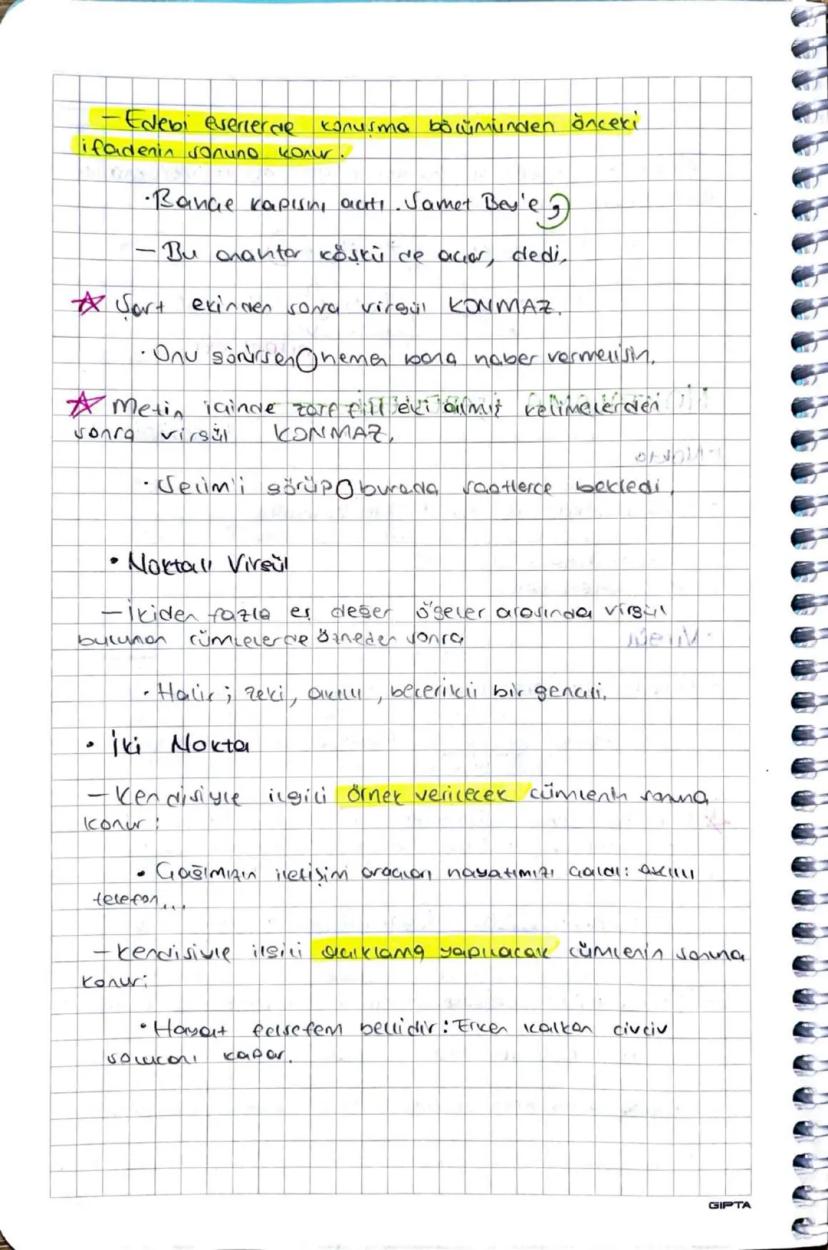 - Edebi eserlerde konuşma bölümünden önceki
ifadenin sonuna konur.
· Bahçe kapısını açtı. Samet Bey'e,
- Bu anahtar köşkü de açar, dedi.
☆ Şart ekinden sonra virgül KONMAZ.
· Onu görürsen hemen bana haber vermelisin.
☆ Metin içinde zarf fiil eki almış kelimelerden
sonra virgül KONMAZ.
· Selim'i görüp burada saatlerce bekledi.
• Noktalı Virgül
- İkiden fazla eş değer ögeler arasında virgül
bulunan cümlelerde özneden sonra
· Halil; zeki, akıllı, becerikli bir gençti.
• İki Nokta
- Kendisiyle ilgili örnek verilecek cümlenin sonuna
konur:
• Çağımızın iletişim araçları hayatımızı çaldı: akıllı
telefon...
- Kendisiyle ilgili açıklama yapılacak cümlenin sonuna
konur:
• Hayat felsefem bellidir: Erken kalkan civciv
solucanı kapar.
GIPTA